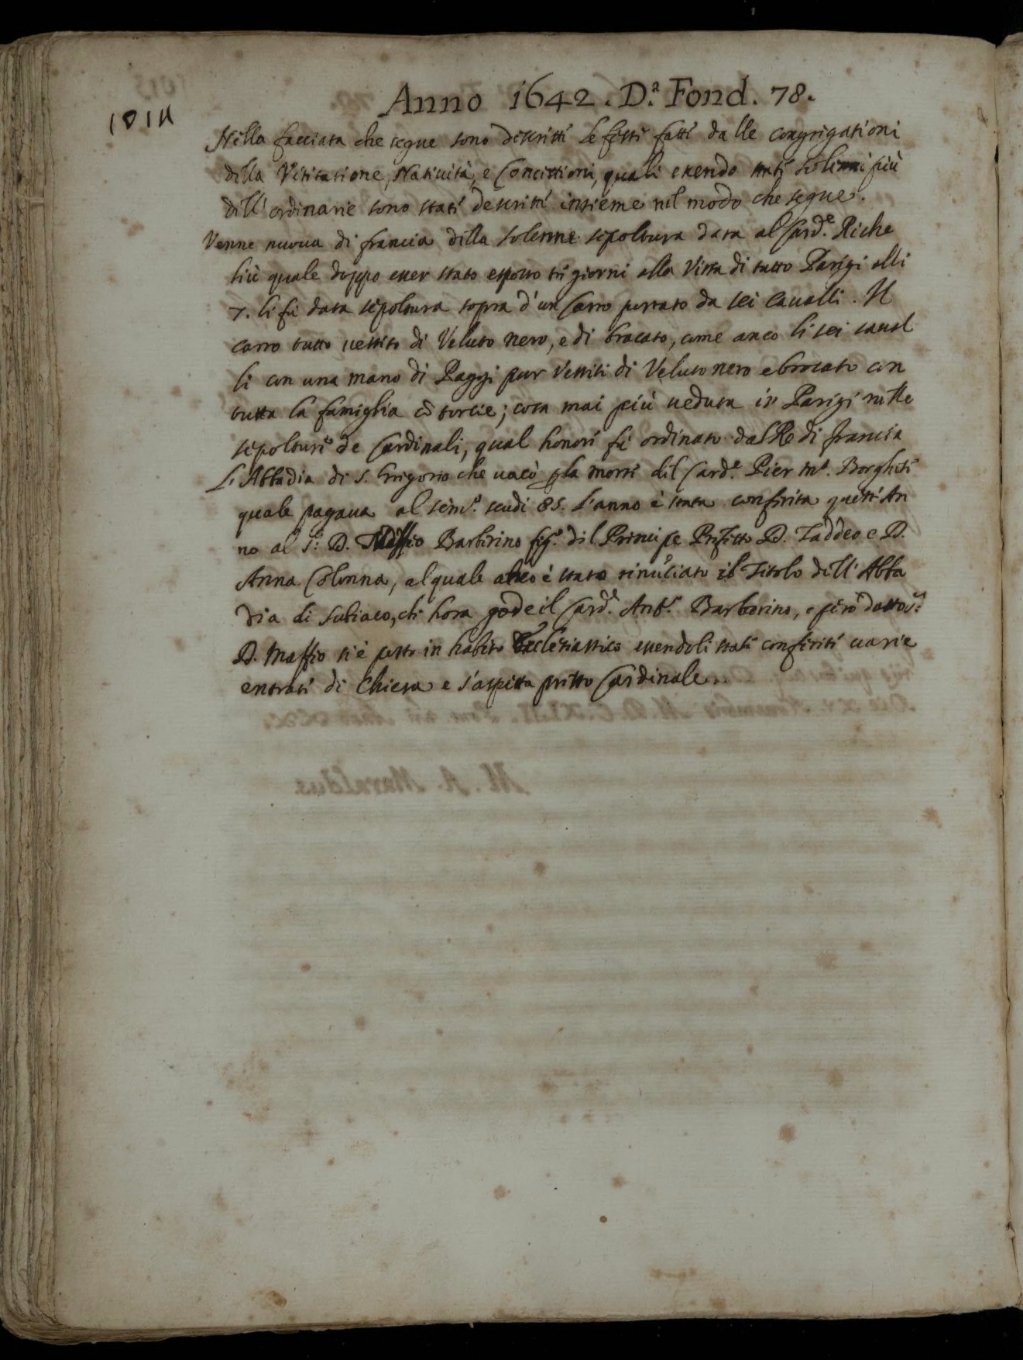 Anno 1642. D.ª Fond. 78.
1014
Nella facciata che segue sono descritti le feste fatte dalle congregationi
della Visitatione, Natività, e Concettione, quali essendo state solenni più
dell'ordinarie sono state descritte insieme nel modo che segue.
Venne nuova di francia della solenne sepoltura data al Card.e Riche
liù quale doppo esser stato esposto tre giorni alla Vista di tutto Parigi alli
7. li fù data sepoltura sopra d'un Carro portato da sei Cavalli. Il
carro tutto vestito di Veluto nero, e di brocato, come anco li sei caval
li con una mano di Paggi pur Vestiti di Veluto nero e brocato con
tutta la famiglia cõ torcie; cosa mai più veduta in Parigi nelle
sepolture de Cardinali, qual honore fù ordinato dal Re di francia
L'Abbadia di S. Gregorio che vacò p la morte del Card.e Pier m.a Borghese
quale pagava al sem.o scudi 85. l'anno è stata conferita quest'An
no al S.r D. Maffio Barberino fig.o del Principe Prefetto D. Taddeo e D.
Anna Colonna, al quale anco è stato rinũciato il Titolo dell'Abba
dia di Subiaco, ch hora gode il Card.e Ant.o Barberino, e però detto S.r
D. Maffio si è posto in habito Ecclesiastico essendoli state conferite varie
entrate di Chiesa e s'aspetta presto Cardinale.
M. A. Maraldus